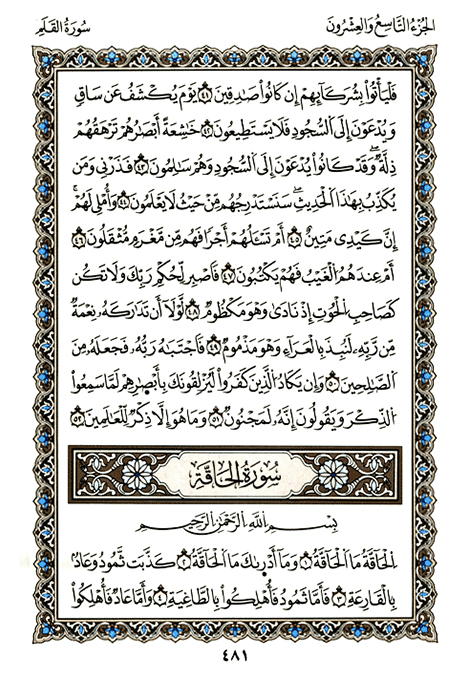 الجُزْءُ التَّاسِعُ وَالعِشْرُونَ سُورَةُ القَلَمِ
فَلْيَأْتُوا۟ بِشُرَكَآئِهِمْ إِن كَانُوا۟ صَـٰدِقِينَ ٤١ يَوْمَ يُكْشَفُ عَن سَاقٍ
وَيُدْعَوْنَ إِلَى ٱلسُّجُودِ فَلَا يَسْتَطِيعُونَ ٤٢ خَـٰشِعَةً أَبْصَـٰرُهُمْ تَرْهَقُهُمْ
ذِلَّةٌ ۖ وَقَدْ كَانُوا۟ يُدْعَوْنَ إِلَى ٱلسُّجُودِ وَهُمْ سَـٰلِمُونَ ٤٣ فَذَرْنِى وَمَن
يُكَذِّبُ بِهَـٰذَا ٱلْحَدِيثِ ۖ سَنَسْتَدْرِجُهُم مِّنْ حَيْثُ لَا يَعْلَمُونَ ٤٤ وَأُمْلِى لَهُمْ ۚ
إِنَّ كَيْدِى مَتِينٌ ٤٥ أَمْ تَسْـَٔلُهُمْ أَجْرًا فَهُم مِّن مَّغْرَمٍ مُّثْقَلُونَ ٤٦
أَمْ عِندَهُمُ ٱلْغَيْبُ فَهُمْ يَكْتُبُونَ ٤٧ فَٱصْبِرْ لِحُكْمِ رَبِّكَ وَلَا تَكُن
كَصَاحِبِ ٱلْحُوتِ إِذْ نَادَىٰ وَهُوَ مَكْظُومٌ ٤٨ لَّوْلَآ أَن تَدَٰرَكَهُۥ نِعْمَةٌ
مِّن رَّبِّهِۦ لَنُبِذَ بِٱلْعَرَآءِ وَهُوَ مَذْمُومٌ ٤٩ فَٱجْتَبَـٰهُ رَبُّهُۥ فَجَعَلَهُۥ مِنَ
ٱلصَّـٰلِحِينَ ٥٠ وَإِن يَكَادُ ٱلَّذِينَ كَفَرُوا۟ لَيُزْلِقُونَكَ بِأَبْصَـٰرِهِمْ لَمَّا سَمِعُوا۟
ٱلذِّكْرَ وَيَقُولُونَ إِنَّهُۥ لَمَجْنُونٌ ٥١ وَمَا هُوَ إِلَّا ذِكْرٌ لِّلْعَـٰلَمِينَ ٥٢
سُورَةُ الحَاقَّةِ
بِسْمِ ٱللَّهِ ٱلرَّحْمَـٰنِ ٱلرَّحِيمِ
ٱلْحَآقَّةُ ١ مَا ٱلْحَآقَّةُ ٢ وَمَآ أَدْرَىٰكَ مَا ٱلْحَآقَّةُ ٣ كَذَّبَتْ ثَمُودُ وَعَادٌۢ
بِٱلْقَارِعَةِ ٤ فَأَمَّا ثَمُودُ فَأُهْلِكُوا۟ بِٱلطَّاغِيَةِ ٥ وَأَمَّا عَادٌ فَأُهْلِكُوا۟
٤٨١